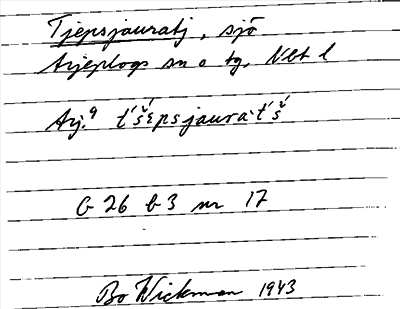 Tjepsjauratj, sjö
Arjeplogs sn o tg, Nbt l
Arj.9 t́šépsjaura·t́š́
G 26 b 3 nr 17
Bo Wickman 1943